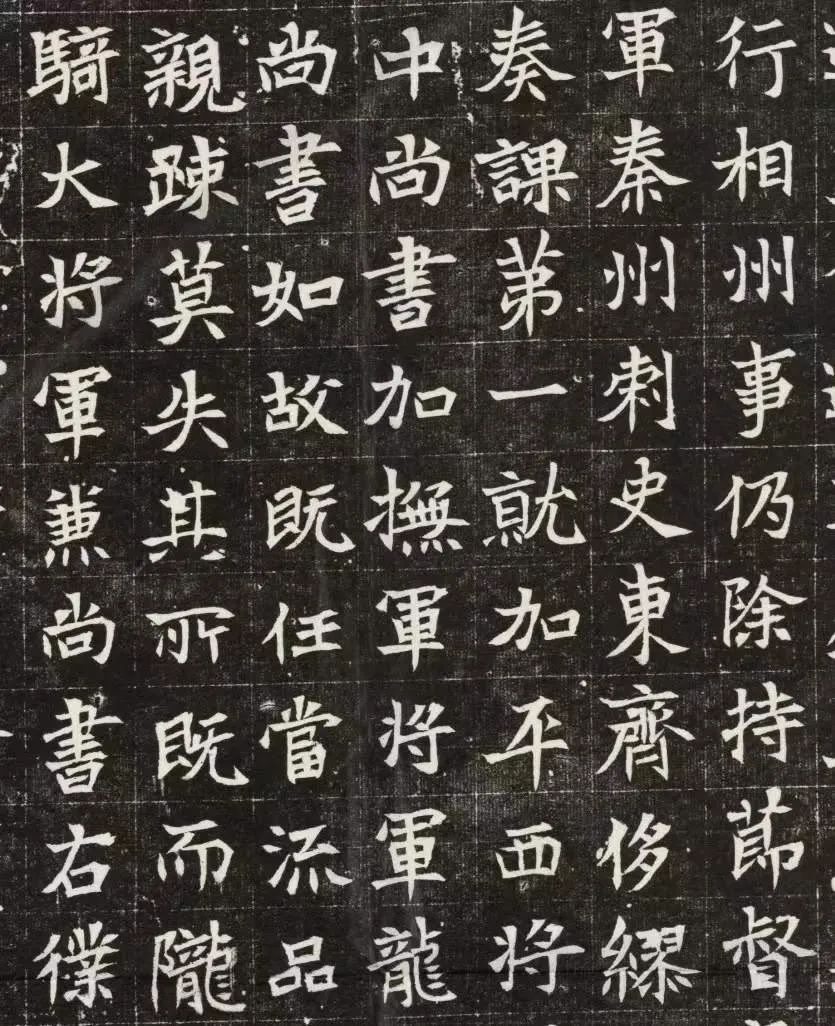 行相州事仍除持莭督
軍秦州刺史東齊侈繆
奏課苐一就加平西将
中尚書加撫軍将軍龍
尚書如故既任當流品
親踈莫失其所既而隴
騎大将軍兼尚書右僕